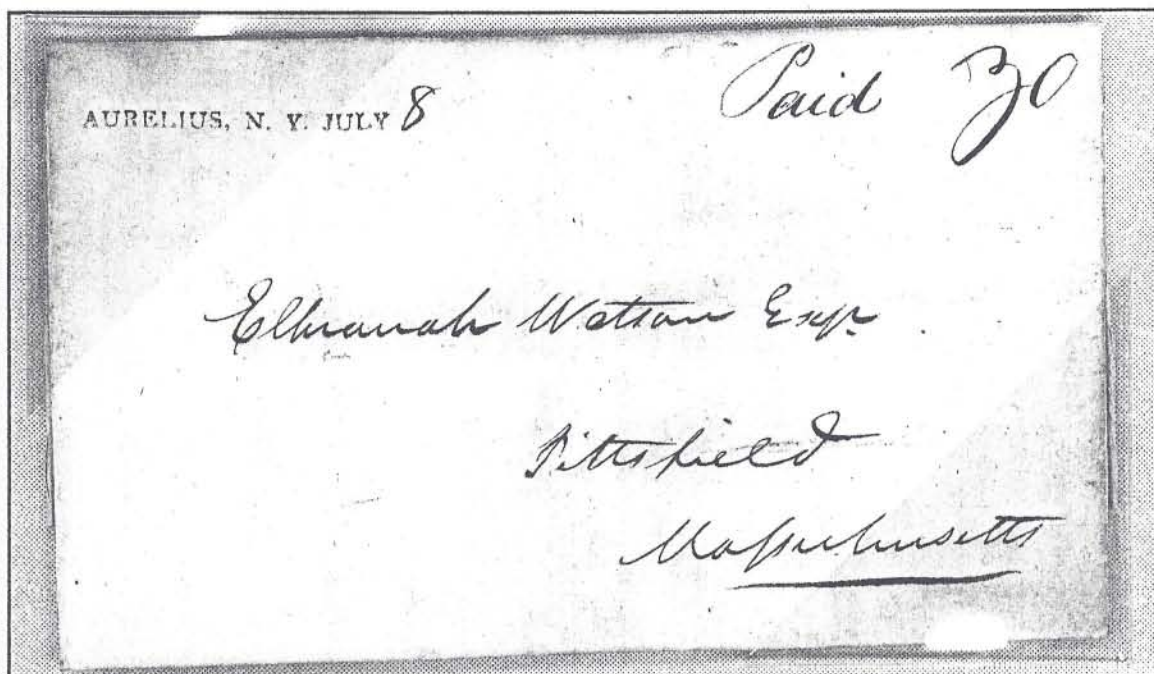 AURELIUS, N. Y. JULY 8
Paid 30
Elkanah Watson Esqr.
Pittsfield
Massachusetts